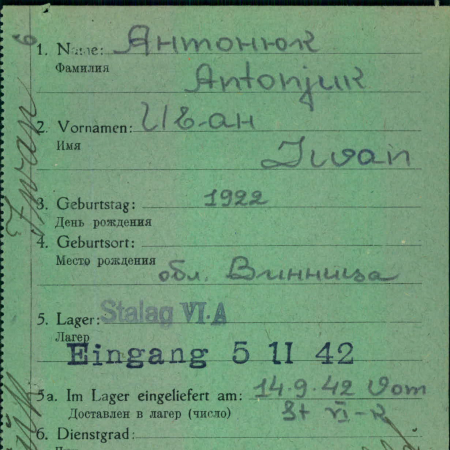 1. Name: Антонюк
Фамилия
Antonjuk
2. Vornamen: Иван
Имя
Iwan
3. Geburtstag: 1922
День рождения
4. Geburtsort:
Место рождения
обл. Винница
5. Lager: Stalag VI-A
Лагер
Eingang 5 11 42
5a. Im Lager eingeliefert am: 14.9.42 Vom
Доставлен в лагер (число) St VI-K
6. Dienstgrad:
Iwan